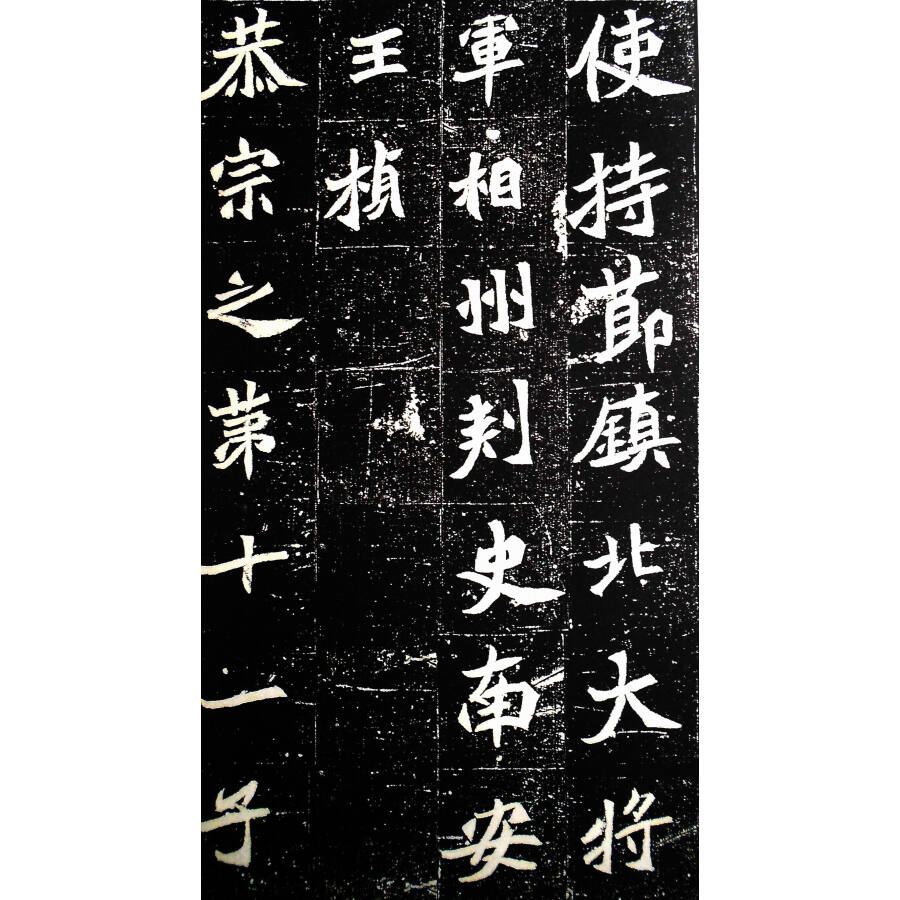 使持節鎮北大将
軍相州刾史南安
王楨
恭宗之苐十一子